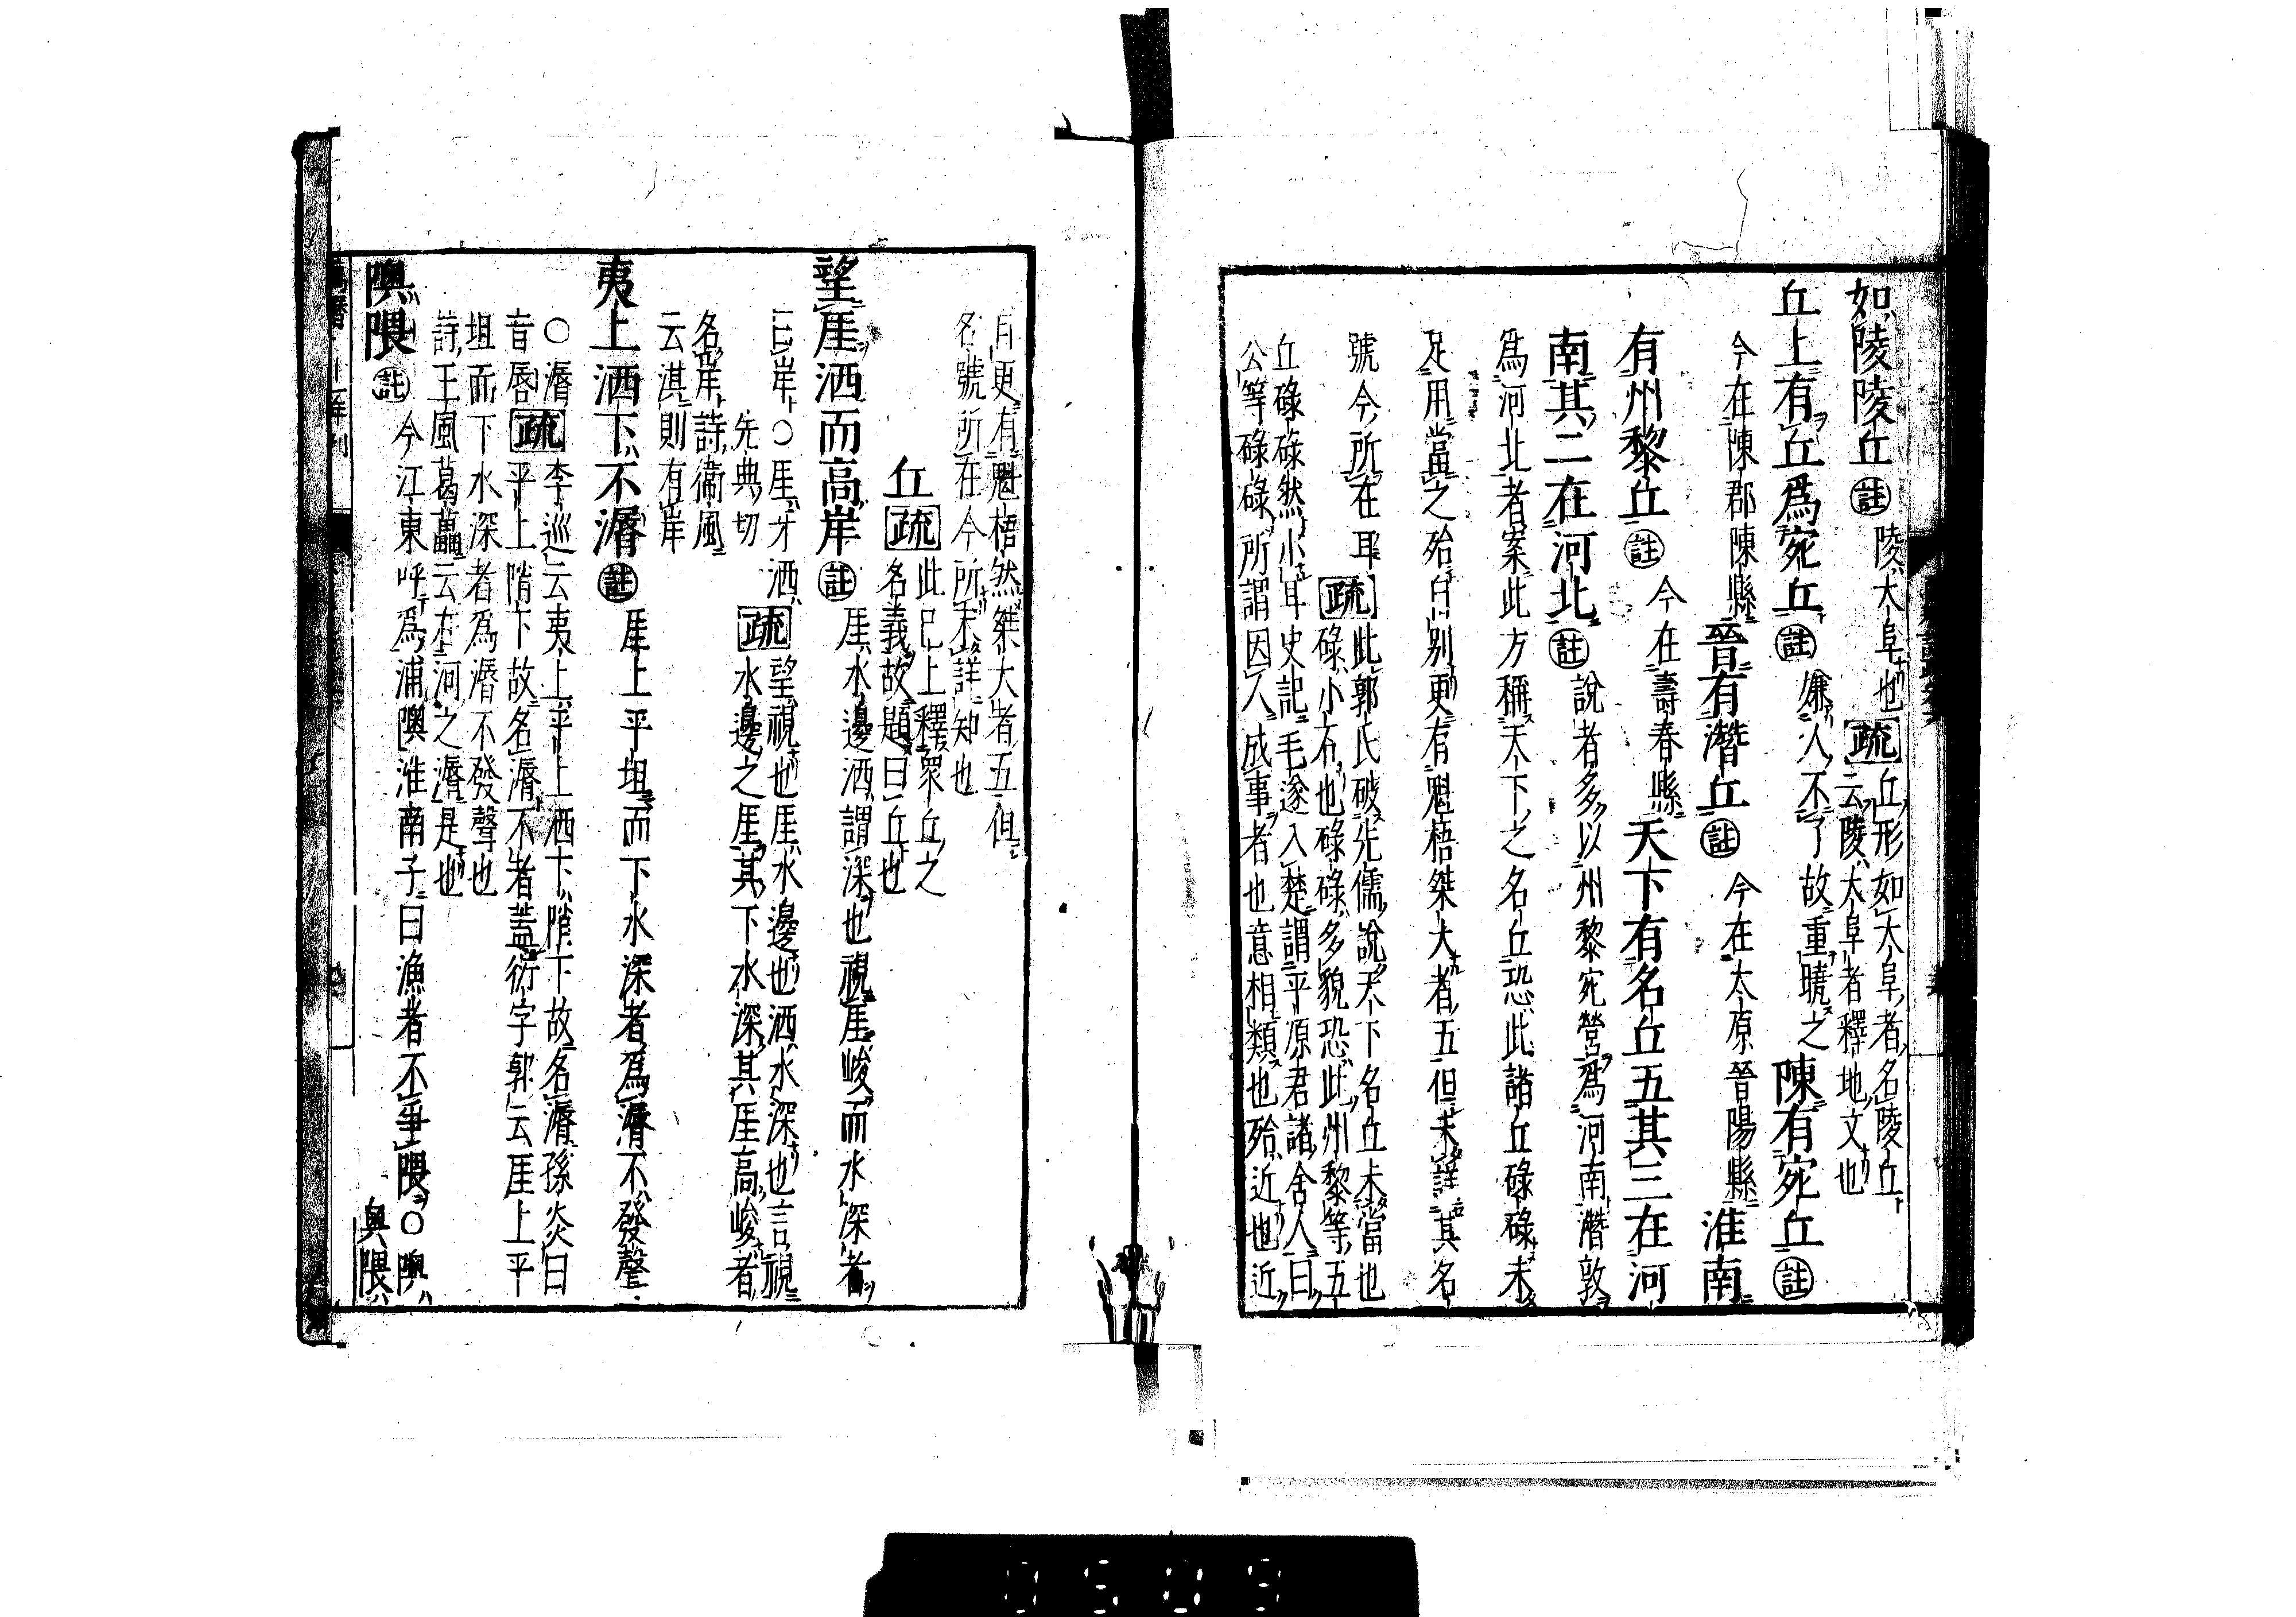 如陵陵丘註陵大阜也疏丘形如大阜者名陵丘
云陵大阜者釋地文也
丘上有丘爲宛丘註嫌人不了故重曉之陳有宛丘註
今在陳郡陳縣晉有潛丘註今在太原晉陽縣淮南
有州黎丘註今在壽春縣天下有名丘五其三在河
南其二在河北註說者多以州黎宛營爲河南潛敦
爲河北者案此方稱天下之名丘恐此諸丘碌碌未
足用當之殆自別更有魁梧桀大者五但未詳其名
號今所在耳疏此郭氏破先儒說天下名丘未當也
碌小石也碌碌多貌恐此州黎等五
丘碌碌然小耳史記毛遂入楚謂平原君諸舍人曰
公等碌碌所謂因人成事者也意相類也殆近也近
自更有魁梧然桀大者五但
名號所在今所未詳知也
丘疏此已上釋眾丘之
名義故題曰丘也
望厓洒而高岸註厓水邊洒謂深也視厓峻而水深者
曰岸○厓才洒
先典切
疏望視也厓水邊也洒水深也言視
水邊之厓其下水深其厓高峻者
名岸詩衞風
云淇則有岸
夷上洒下不漘註厓上平坦而下水深者爲漘不發聲
○漘
音脣疏李巡云夷上平上洒下陗下故名漘孫炎曰
平上陗下故名漘不者蓋衍字郭云厓上平
坦而下水深者爲漘不發聲也
詩王風葛藟云在河之漘是也
隩隈註今江東呼爲浦隩淮南子曰漁者不爭隈○隩
奥隈